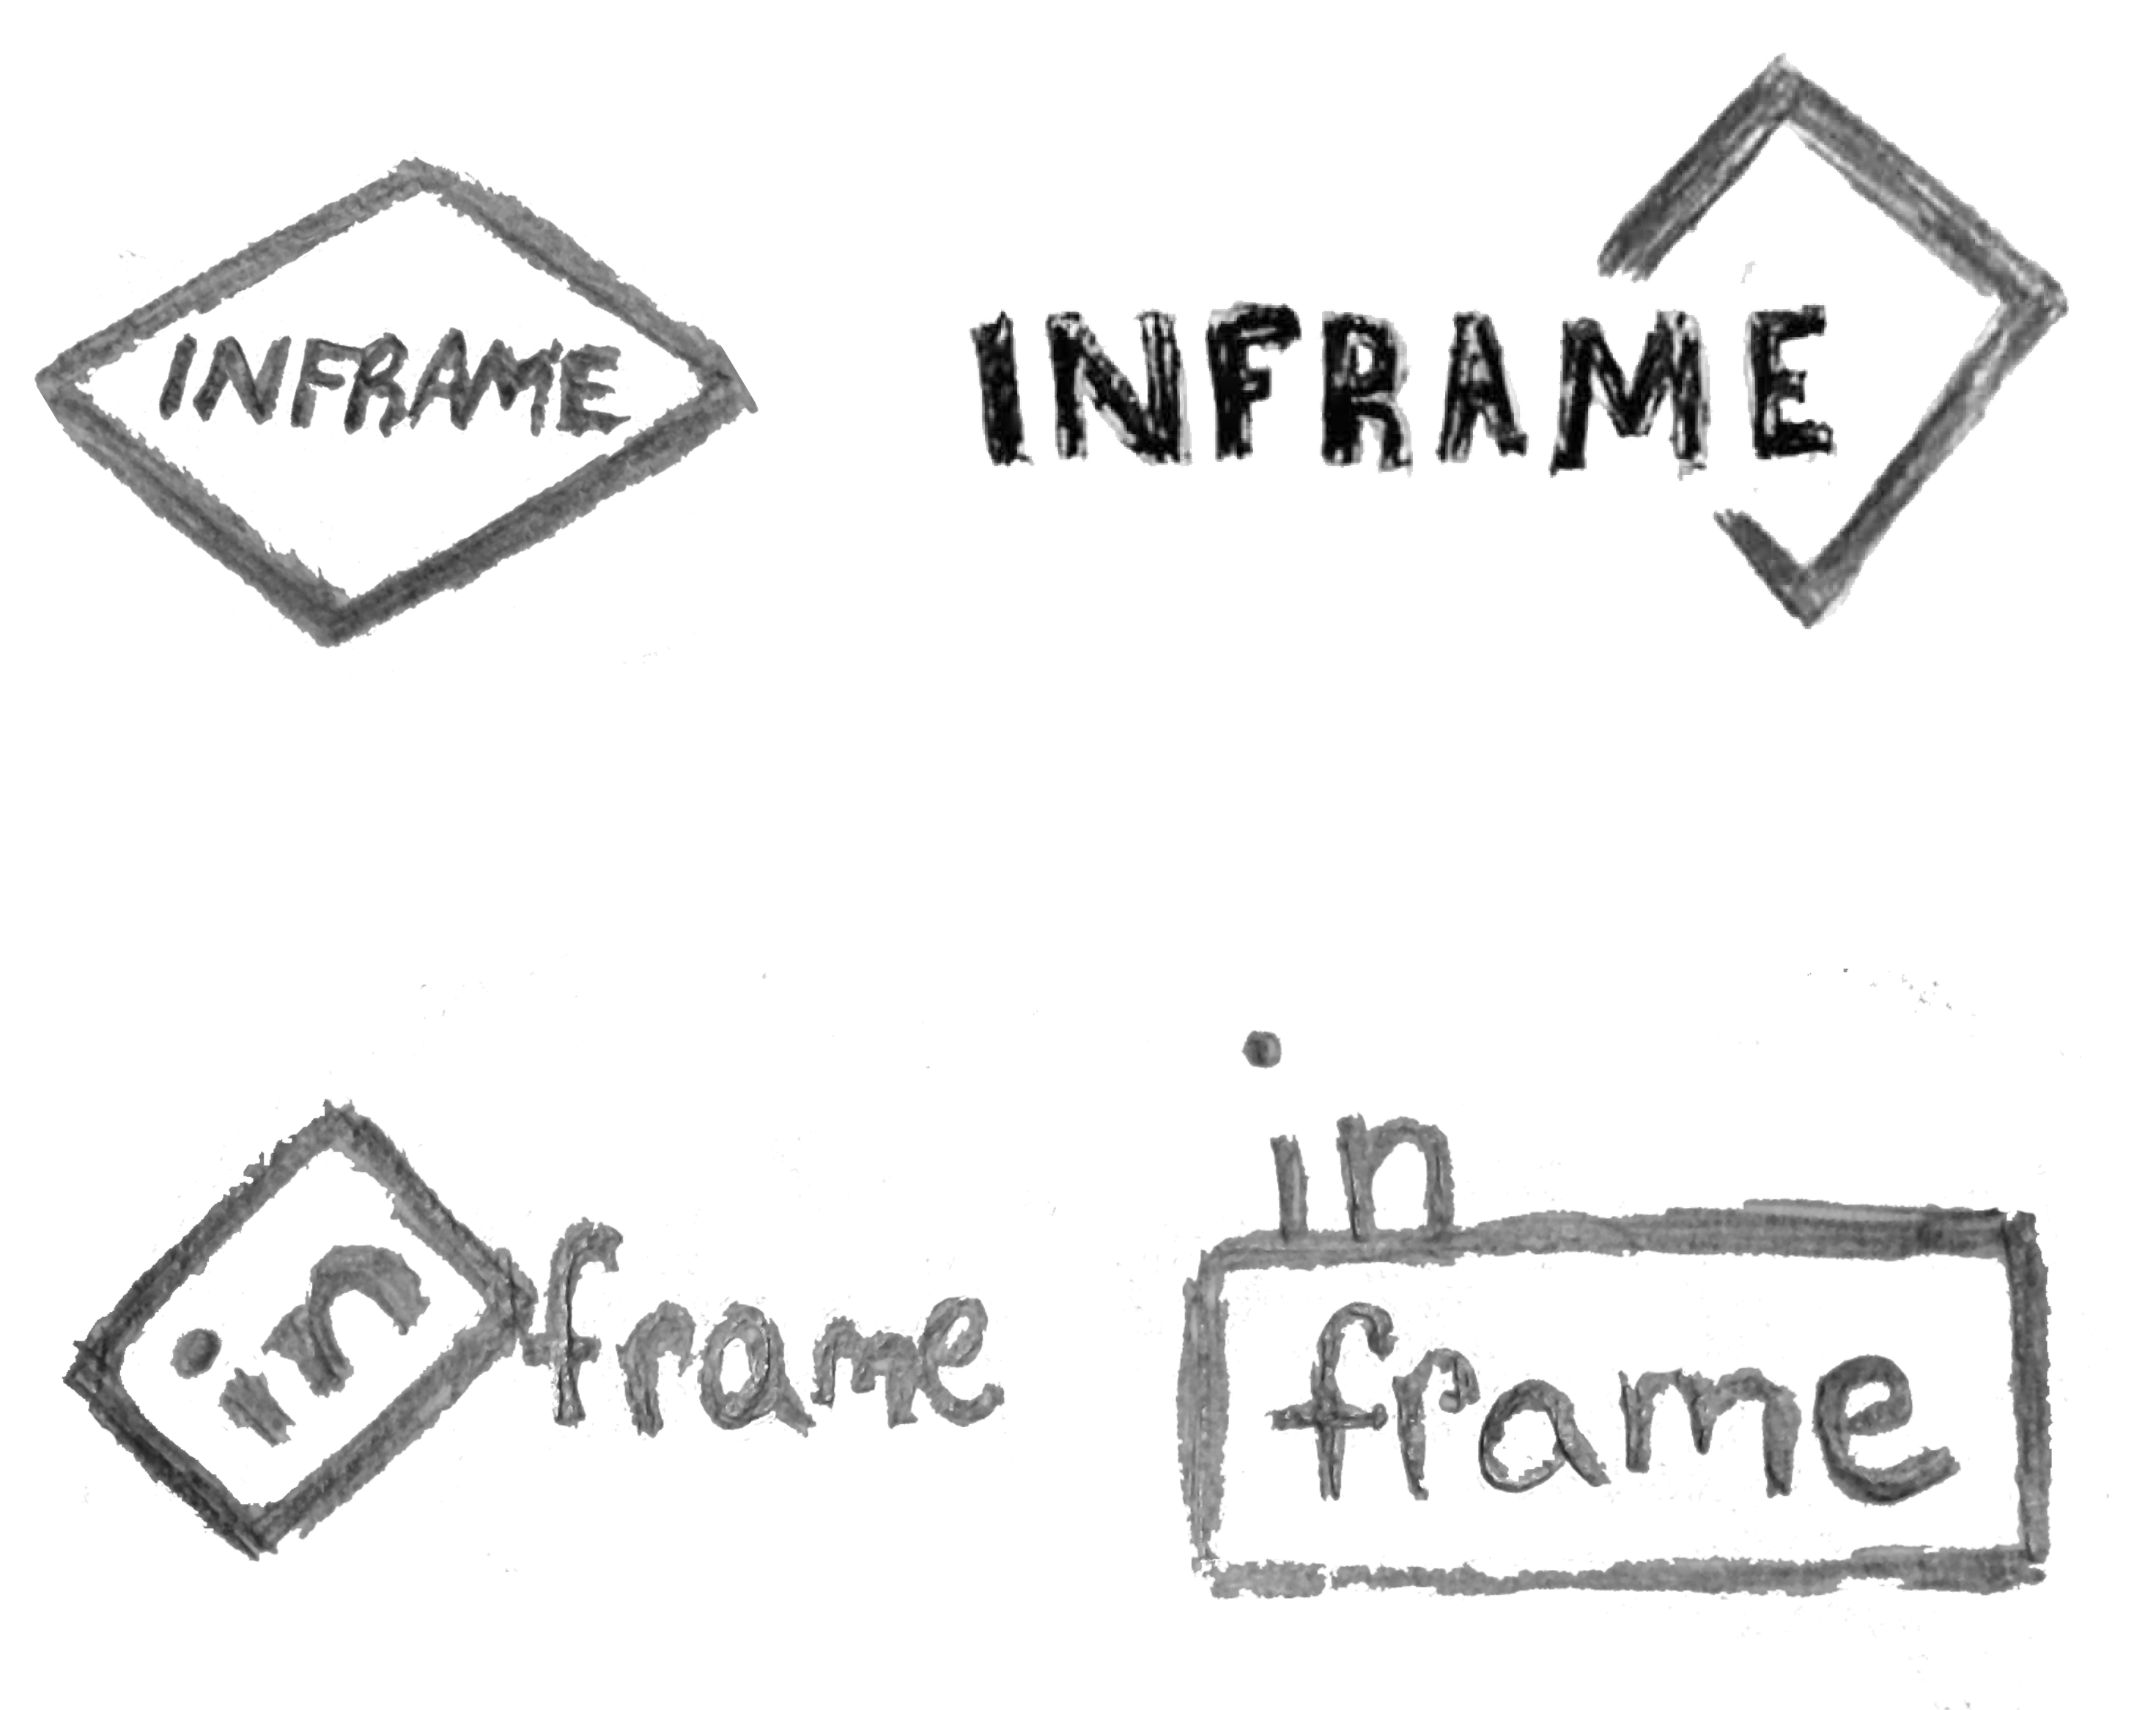 INFRAME
INFRAME
in
frame
in
frame